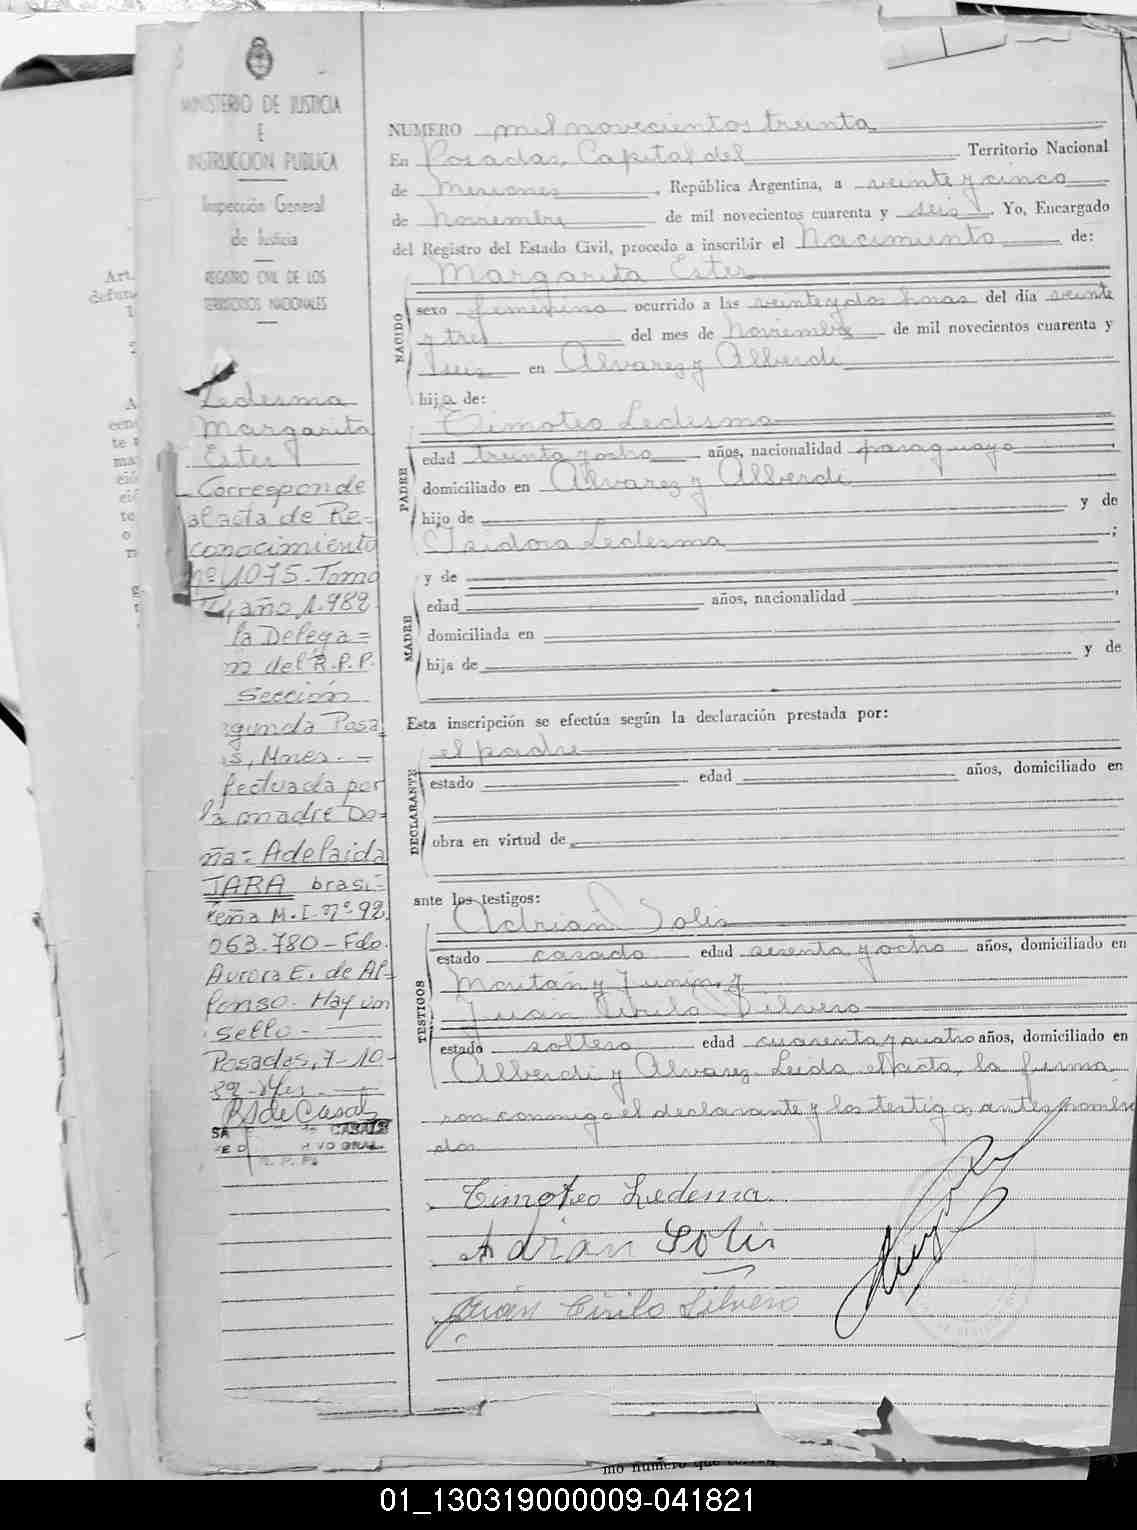 MINISTERIO DE JUSTICIA
E
INSTRUCCION PUBLICA
Inspección General
de Justicia
REGISTRO CIVIL DE LOS
TERRITORIOS NACIONALES
Ledesma
Margarita
Ester
Corresponde
al acta de Re-
conocimiento
nº 1075. Tomo
año 1.982
la Delega=
n del R.P.P.
Sección
gunda Posa
s, Mnes. =
fectuada por
la madre Do-
ña= Adelaida
JARA brasi=
leña M.I. nº 92
063.780 - Fdo.
Aurora E. de Al-
fonso. Hay un
sello.
Posadas, 7-10-
NUMERO mil novecientos treinta
En Posadas, Capital del Territorio Nacional
de Misiones, República Argentina, a veinte y cinco
de Noviembre de mil novecientos cuarenta y seis. Yo, Encargado
del Registro del Estado Civil, procedo a inscribir el Nacimiento de:
Margarita Ester
NACIDO
sexo femenino ocurrido a las veinte y dos horas del día veinte
y tres del mes de Noviembre de mil novecientos cuarenta y
seis en Alvarez y Alberdi
hija de:
Timoteo Ledesma
PADRE
edad treinta y ocho años, nacionalidad paraguayo
domiciliado en Alvarez y Alberdi
hijo de y de
Isidora Ledesma ;
MADRE
y de
edad años, nacionalidad ,
domiciliada en
hija de y de
Esta inscripción se efectúa según la declaración prestada por:
el padre
DECLARANTE
estado edad años, domiciliado en
obra en virtud de
ante los testigos:
Adrian Solis
TESTIGOS
estado casado edad sesenta y ocho años, domiciliado en
y Junin y
Juan Cirilo Silvero
estado soltero edad cuarenta y cuatro años, domiciliado en
Alberdi y Alvarez. Leida el acta, la firma
ron conmigo el declarante y los testigos antes nombra
dos.
Timoteo Ledema
Adrian Solis
Juan Cirilo Silvero
mo numero que
01_130319000009-041821